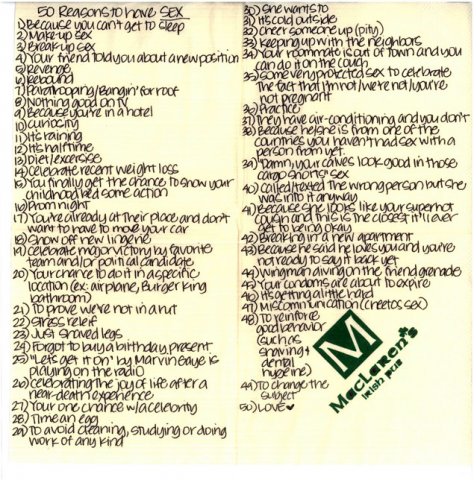 50 Reasons to have SEX
1) Because you can't get to sleep
2) Make up sex
3) Break up sex
4) Your friend told you about a new position
5) Revenge
6) Rebound
7) Parathooping/Bangin' for roof
8) Nothing good on TV
9) Because you're in a hotel
10) Curiosity
11) It's raining
12) It's halftime
13) Diet/exercise
14) Celebrate recent weight loss
15) You finally get the chance to show your
childhood bed some action
16) Prom night
17) You're already at their place and don't
want to have to move your car
18) Show off new lingerie
19) Celebrate major victory by favorite
team and/or political candidate
20) Your chance to do it in a specific
location (ex: airplane, Burger King
bathroom)
21) To prove we're not in a rut
22) Stress relief
23) Just shaved legs
24) Forgot to buy a birthday present
25) "Let's get it on" by Marvin Gaye is
playing on the radio
26) Celebrating the joy of life after a
near-death experience
27) Your one chance w/a celebrity
28) Time an egg
29) To avoid cleaning, studying or doing
work of any kind
30) She wants to
31) It's cold outside
32) Cheer someone up (pity)
33) Keeping up with the neighbors
34) Your roommate is out of town and you
can do it on the couch
35) Some very protected sex to celebrate
the fact that I'm not/we're not/you're
not pregnant
36) Practice
37) They have air-conditioning and you don't
38) Because he/she is from one of the
countries you haven't had sex with a
person from yet.
39) "Damn, your calves look good in those
cargo shorts" sex
40) Called/texted the wrong person but she
was into it anyway
41) Because she looks like your super hot
cousin and this is the closest it'll ever
get to being okay
42) Breaking in a new apartment
43) Because he said he loves you and you're
not ready to say it back yet
44) Wingman diving on the friend grenade
45) Your condoms are about to expire
46) It's getting a little hard
47) Miscommunication (cheetos sex)
48) To reinforce
good behavior
(such as
shaving +
dental
hygiene)
49) To change the
subject
50) LOVE ♥
M
MacLaren's
Irish Pub